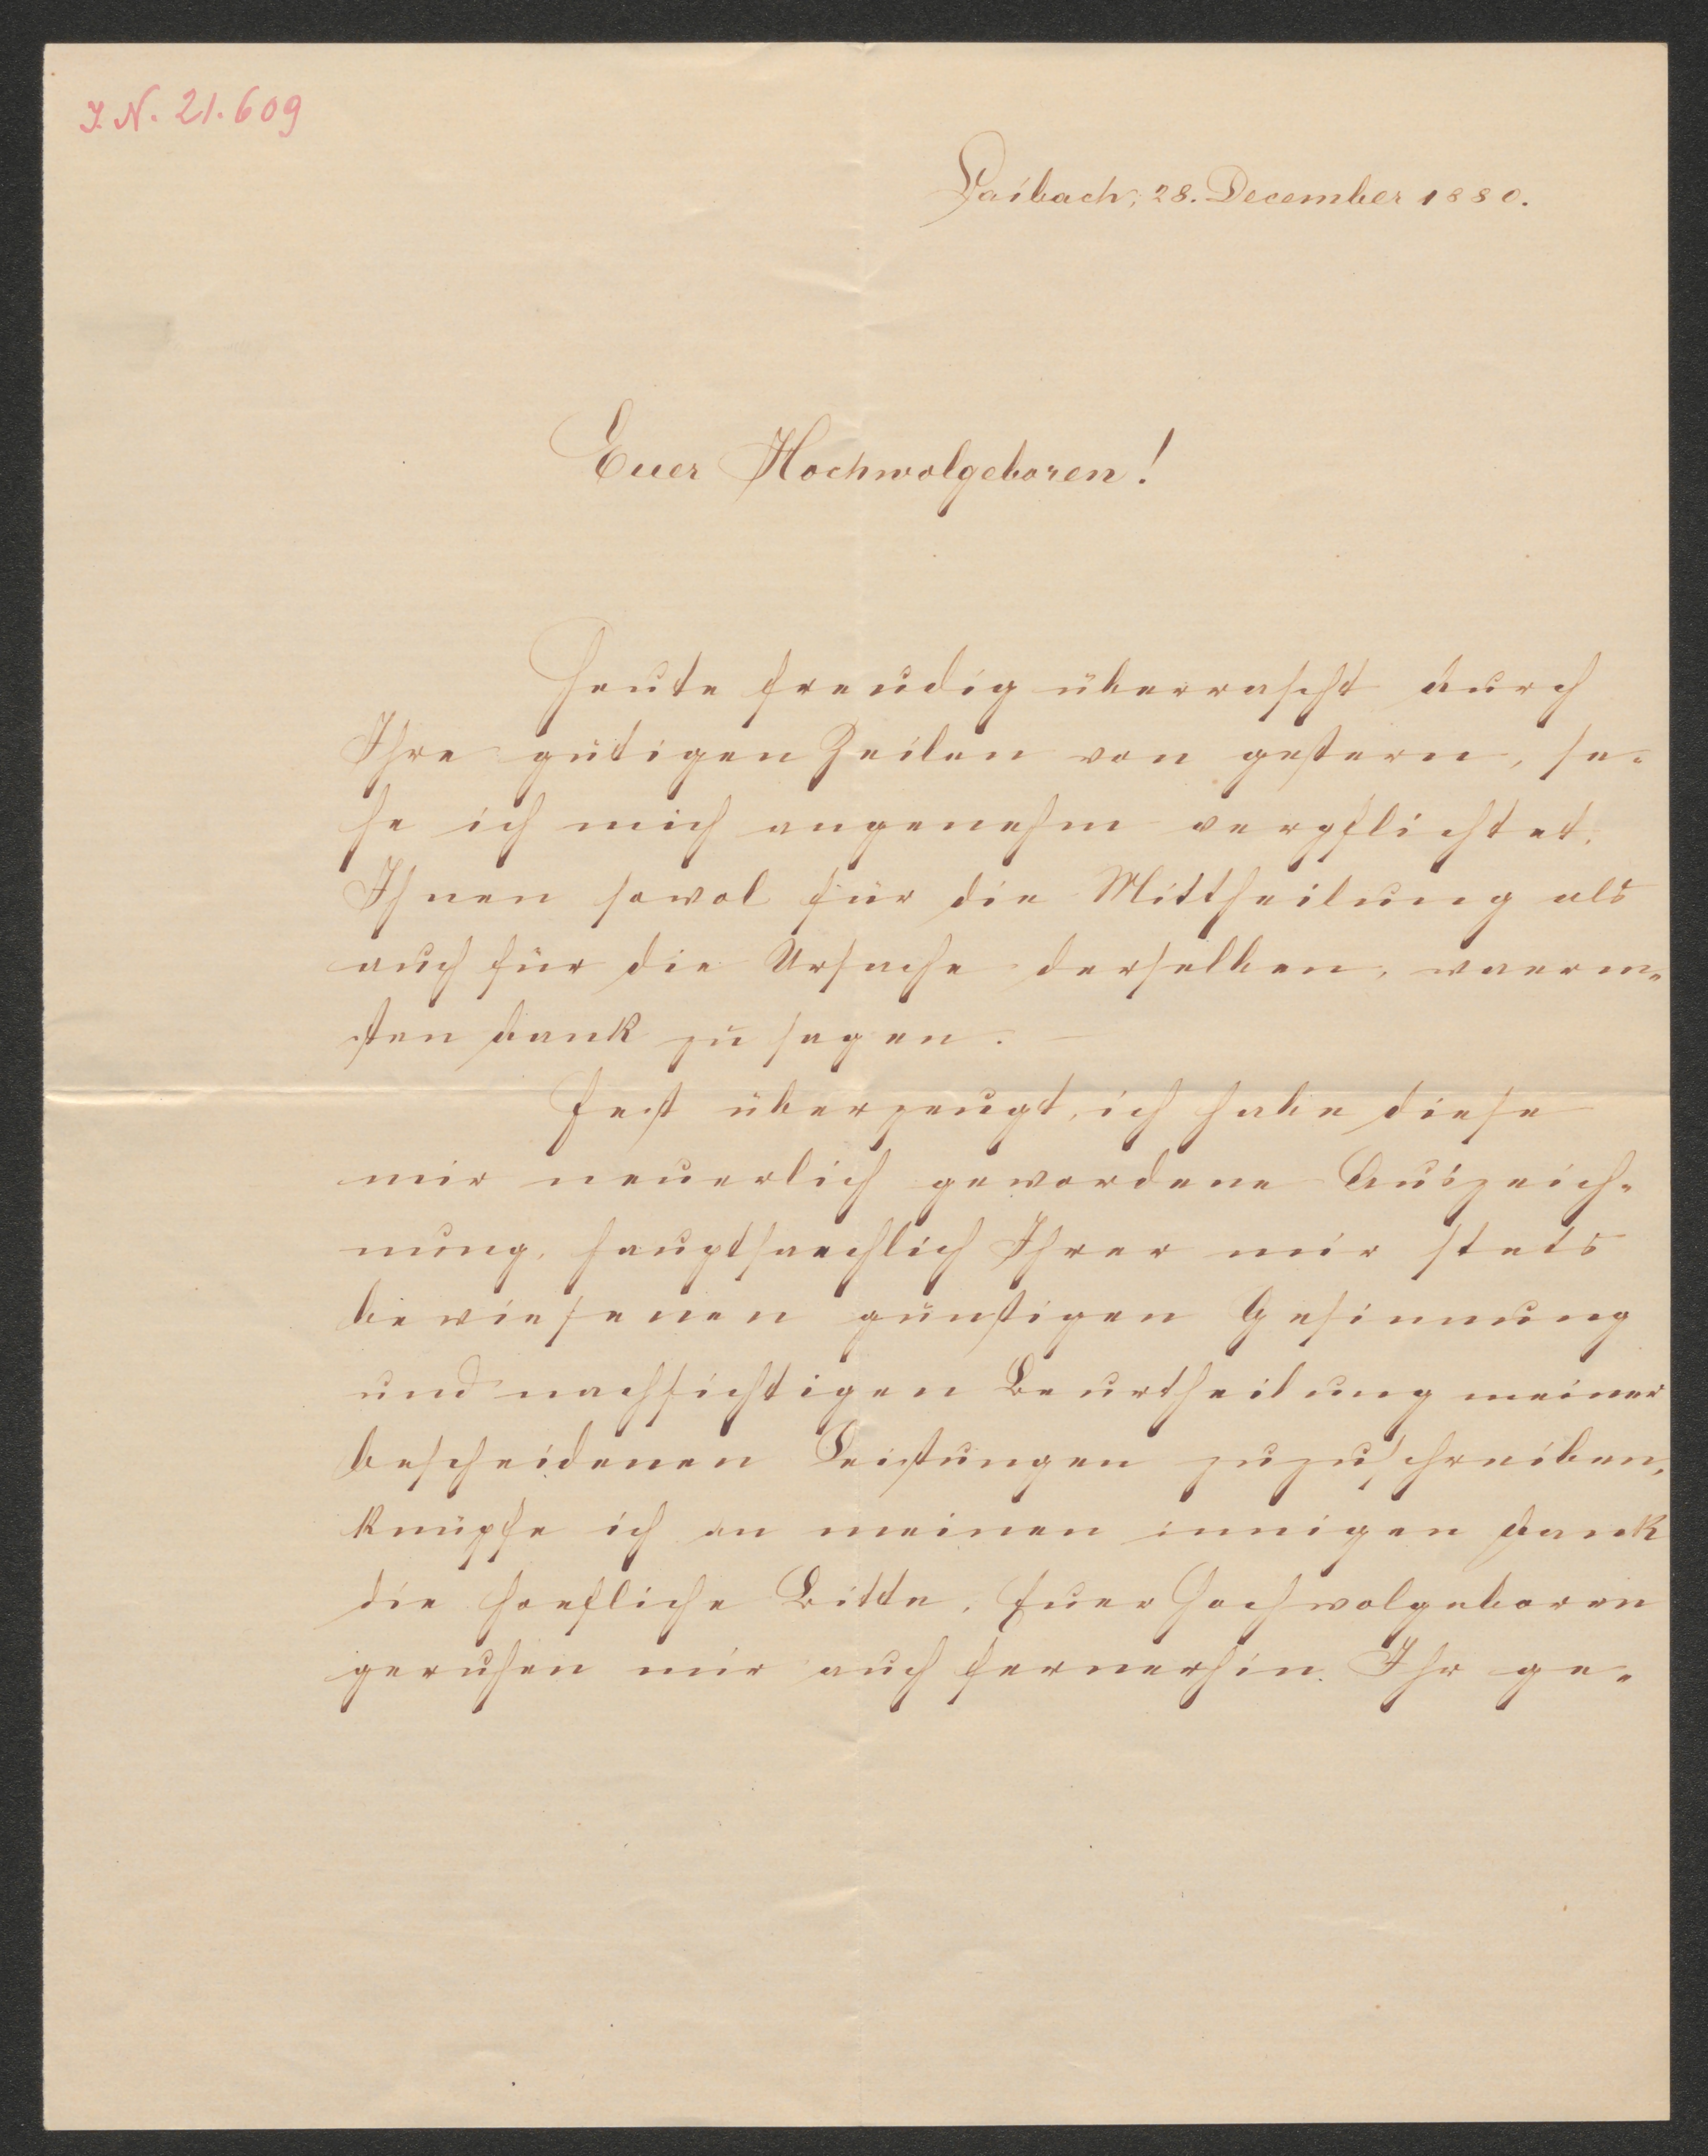 I. N. 21.609
Laibach, 28. December 1880.
Euer Hochwolgeboren!
Heute freudig überrascht durch
Ihre gütigen Zeilen von gestern, se-
he ich mich angenehm verpflichtet,
Ihnen sowol für die Mittheilung als
auch für die Ursache derselben, waerm-
sten Dank zu sagen. —
Fest überzeugt, ich habe diese
mir neuerlich gewordene Auszeich-
nung, hauptsaechlich Ihrer mir stets
bewiesenen günstigen Gesinnung
und nachsichtigen Beurtheilung meiner
bescheidenen Leistungen zuzuschreiben,
knüpfe ich an meinen innigen Dank
die hoefliche Bitte, Euer Hochwolgeboren
geruhen mir auch fernerhin Ihr ge-